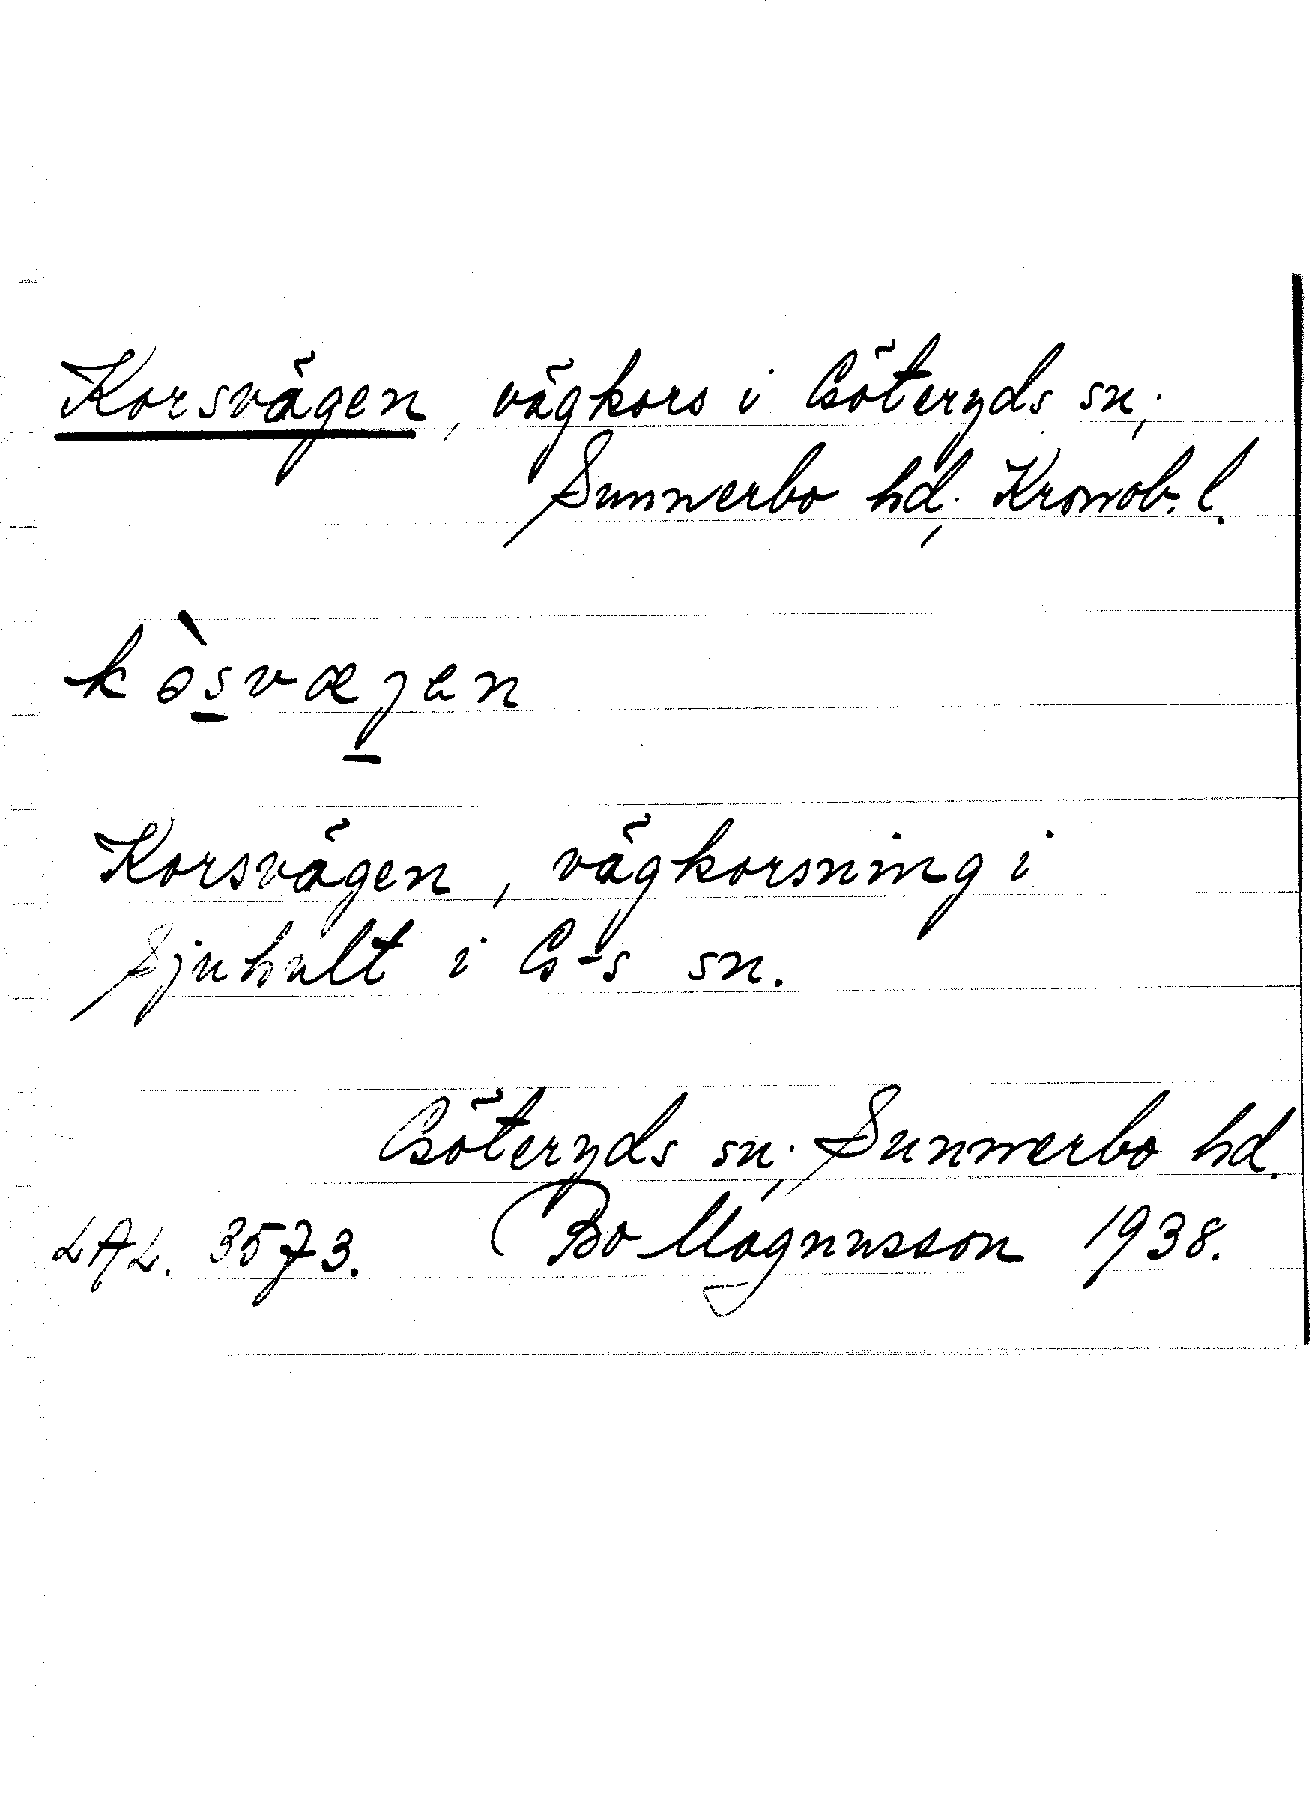 Korsvägen, vägkors i Göteryds sn;
Sunnerbo hd; Kronob. l.
kòsvæjen
Korsvägen, vägkorsning i
Sjuhult i G-s sn.
Göteryds sn; Sunnerbo hd.
LAL. 3573. Bo Magnusson 1938.